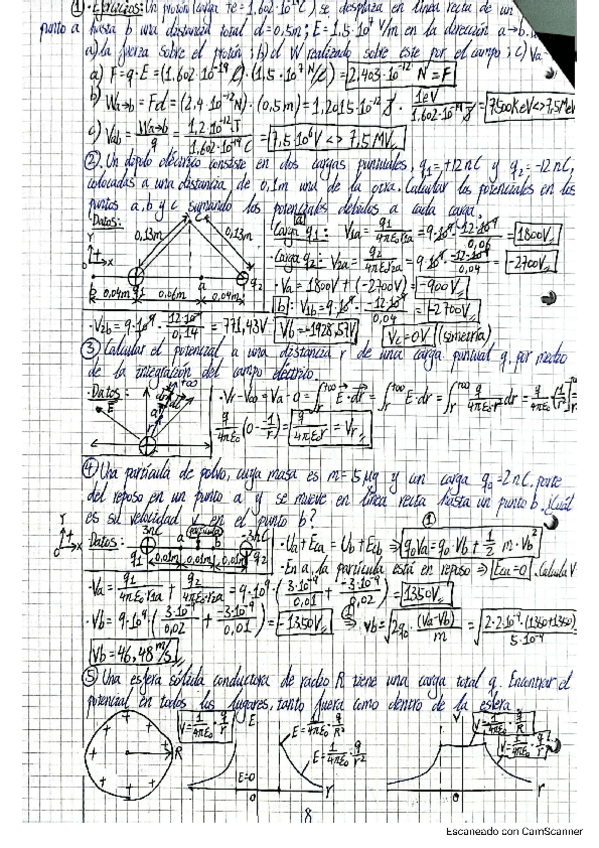 ① Ejercicios: Un protón (carga +e = 1,602·10⁻¹⁹ C) se desplaza en línea recta de un
punto a hasta b una distancia total d=0,5m; E=1,5·10⁷ V/m en la dirección a→b.
a) la fuerza sobre el protón; b) el W realizado sobre este por el campo; c) Va-
a) F=q·E=(1,602·10⁻¹⁹ C)·(1,5·10⁷ N/C)=2,403·10⁻¹² N=F
b) Wa→b=Fd=(2,4·10⁻¹²N)·(0,5m)=1,2015·10⁻¹² J · 1eV/1,602·10⁻¹⁹ J = 7500KeV<>7,5MeV
c) Vab = Wa→b/q = 1,2·10⁻¹² J/1,602·10⁻¹⁹ C = 7,5·10⁶ V <> 7,5 MV
② Un dipolo eléctrico consiste en dos cargas puntuales, q₁=+12nC y q₂=-12nC,
colocadas a una distancia de 0,1m una de la otra. Calcular los potenciales en los
puntos a, b y c sumando los potenciales debidos a cada carga.
Datos: C a
0,13m 0,13m Carga q₁: V₁a = q₁/4πε₀r₁a = 9·10⁹·12·10⁻⁹/0,06 = 1800V
Y x Carga q₂: V₂a = q₂/4πε₀r₂a = 9·10⁹·-12·10⁻⁹/0,04 = -2700V
b q₁ a q₂ ·Va=1800V+(-2700V)=-900V
0,04m 0,06m 0,04m b: V₁b=9·10⁹·-12·10⁻⁹/0,04 = -2700V
·V₂b=9·10⁹·12·10⁻⁹/0,14 = 771,43V Vb=-1928,57V Vc=0V (simetría)
③ Calcular el potencial a una distancia r de una carga puntual q, por medio
de la integración del campo eléctrico.
·Datos: ·Vr-V∞=Va-0=∫r+∞ E·dr=∫r+∞ E·dr=∫r+∞ q/4πε₀·r² dr=
q/4πε₀(0-1/r)=q/4πε₀r=Vr
④ Una partícula de polvo, cuya masa es m=5μg y con carga q₀=2nC, parte
del reposo en un punto a y se mueve en línea recta hasta un punto b. ¿Cuál
es su velocidad v en el punto b?
Datos: 3nC a partícula b -3nC ·Ua+Eca=Ub+Ecb ⇒ q₀Va=q₀·Vb+1/2 m·Vb² ①
q₁ 0,01m 0,01m 0,01m q₂ ·En a, la partícula está en reposo ⇒ Eca=0. Calcula V
·Va=q₁/4πε₀r₁a+q₂/4πε₀r₂a=9·10⁹·(3·10⁻⁹/0,01+-3·10⁻⁹/0,02)=1350V
·Vb=9·10⁹·(3·10⁻⁹/0,02+-3·10⁻⁹/0,01)=-1350V ①⇒ Vb=√2q₀·(Va-Vb)/m=√2·2·10⁻⁹·(1350+1350)/5·10⁻⁹
Vb=46,48m/s
⑤ Una esfera sólida conductora de radio R tiene una carga total q. Encontrar el
potencial en todos los lugares, tanto fuera como dentro de la esfera.
V=1/4πε₀·q/r E E=1/4πε₀·q/R² V V=1/4πε₀·q/R
R E=1/4πε₀·q/r² V=1/4πε₀·q/r
E=0
0 r 0 r
8
Escaneado con CamScanner